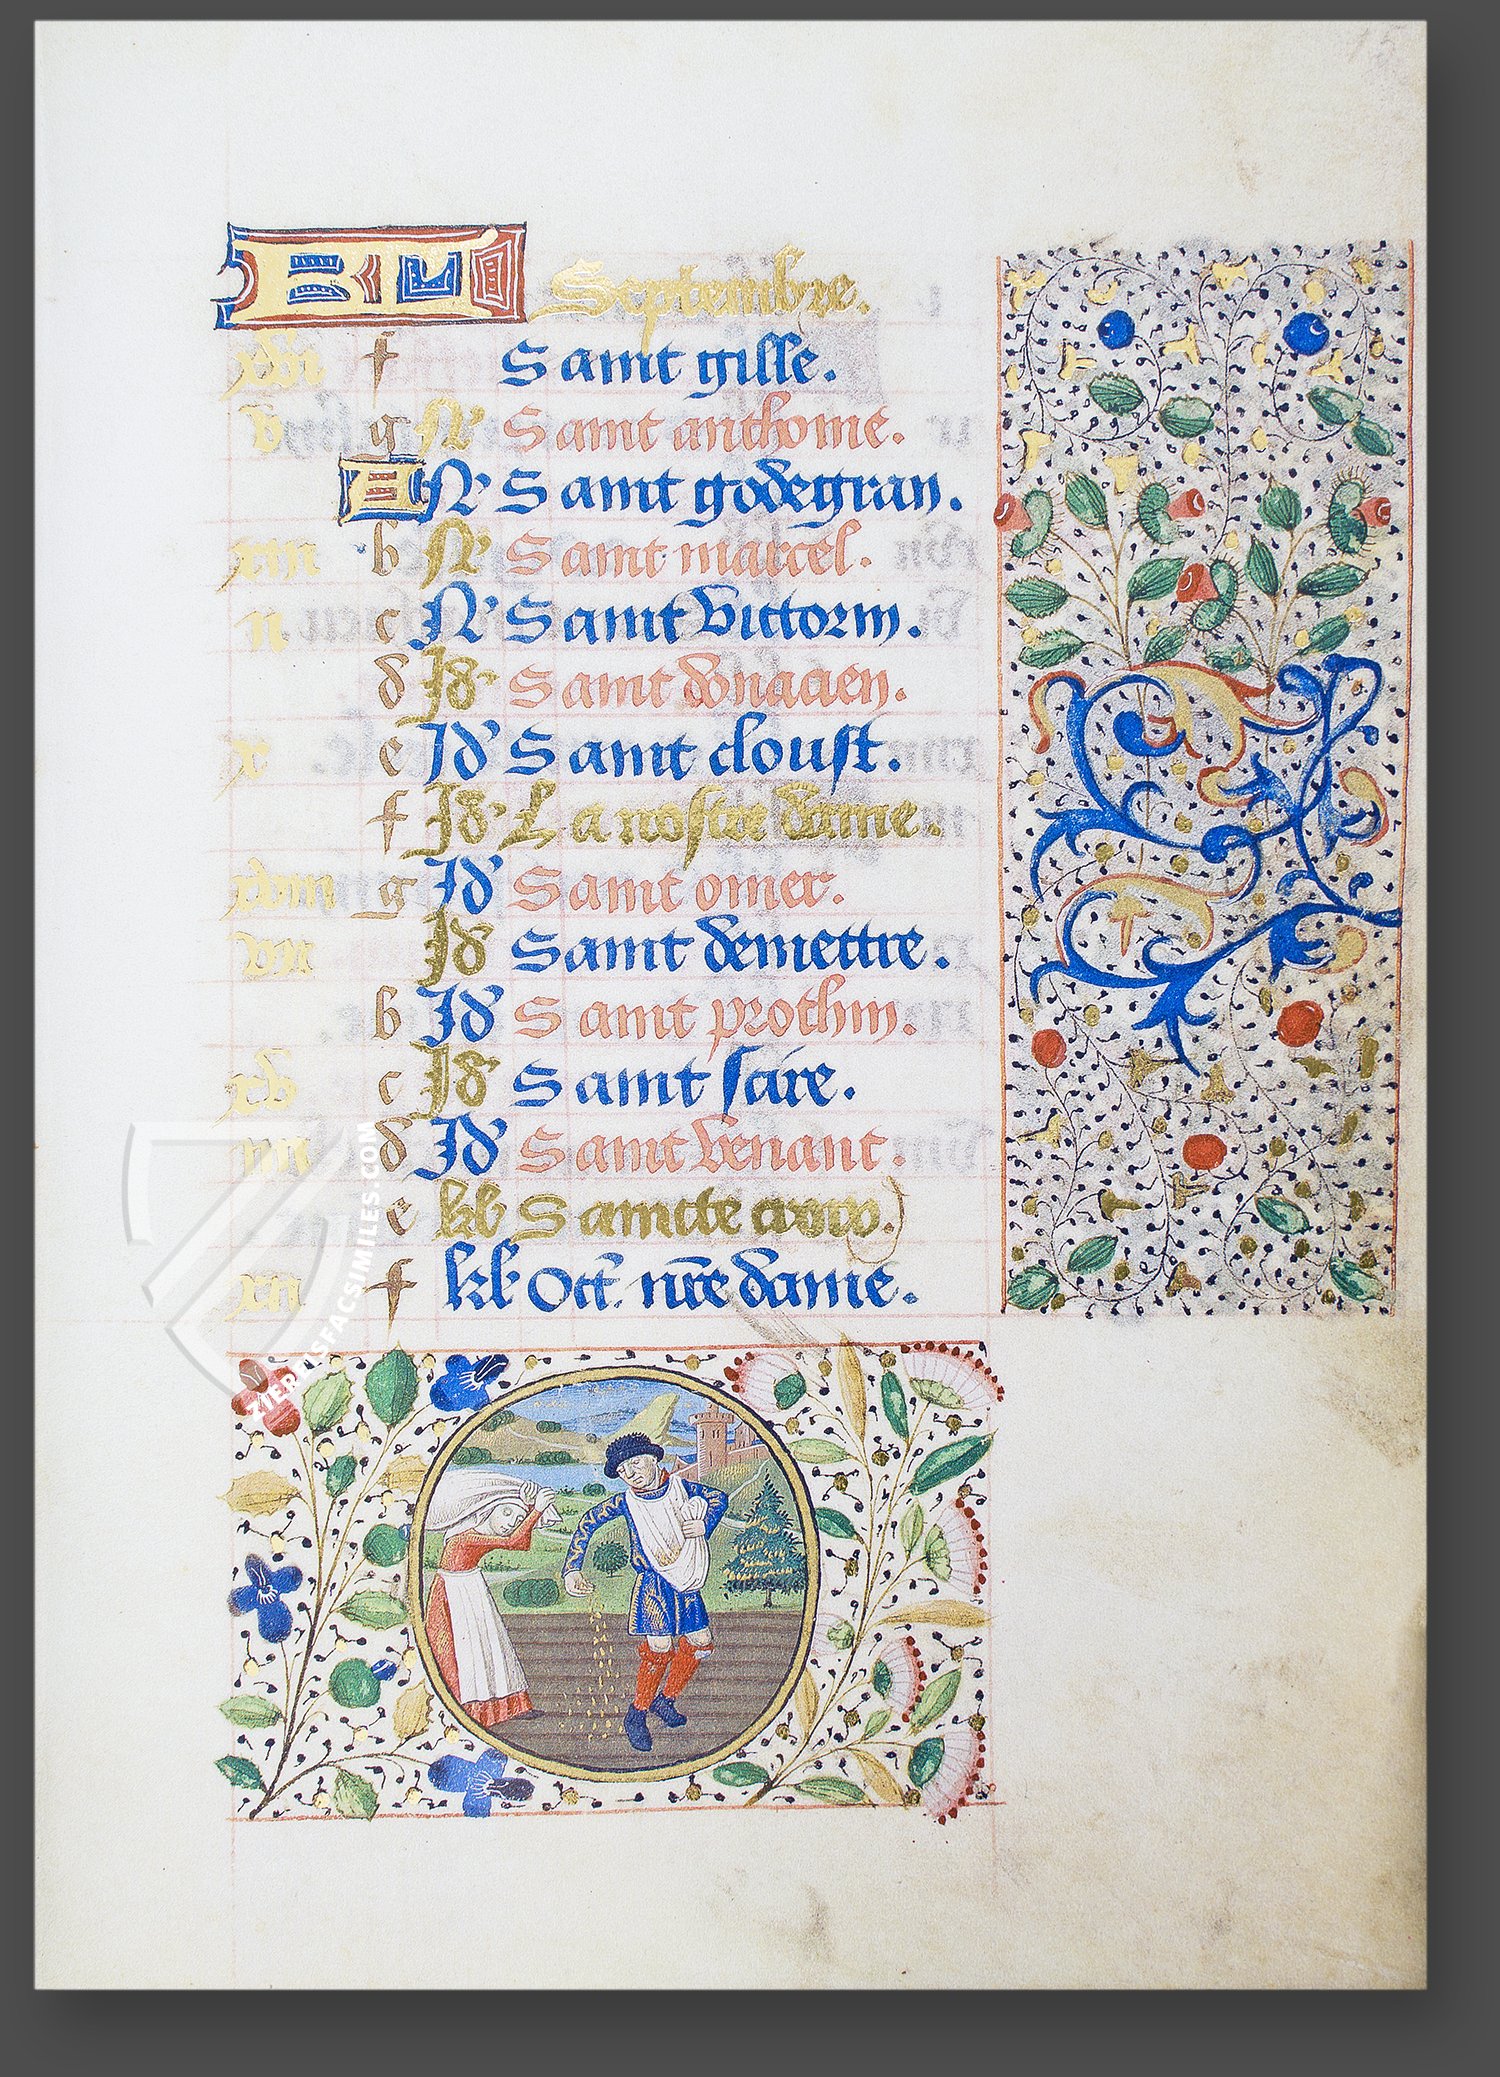 15
KL Septembre.
xvi f Saint gille.
v g N' Saint anthoine.
A N' Saint godegran.
xiii b N' Saint marcel.
ii c N' Saint victorin.
d Id' Saint donacien.
x e Id' Saint cloust.
f Id' La nostre dame.
xviii g Id' Saint omer.
vii Id' Saint demettre.
b Id' Saint prothin.
xv c Id' Saint sire.
iiii d Id' Saint venant.
e kl' Saincte croix.
xii f kl' Oct. nre dame.
ZIEREISFACSIMILES.COM